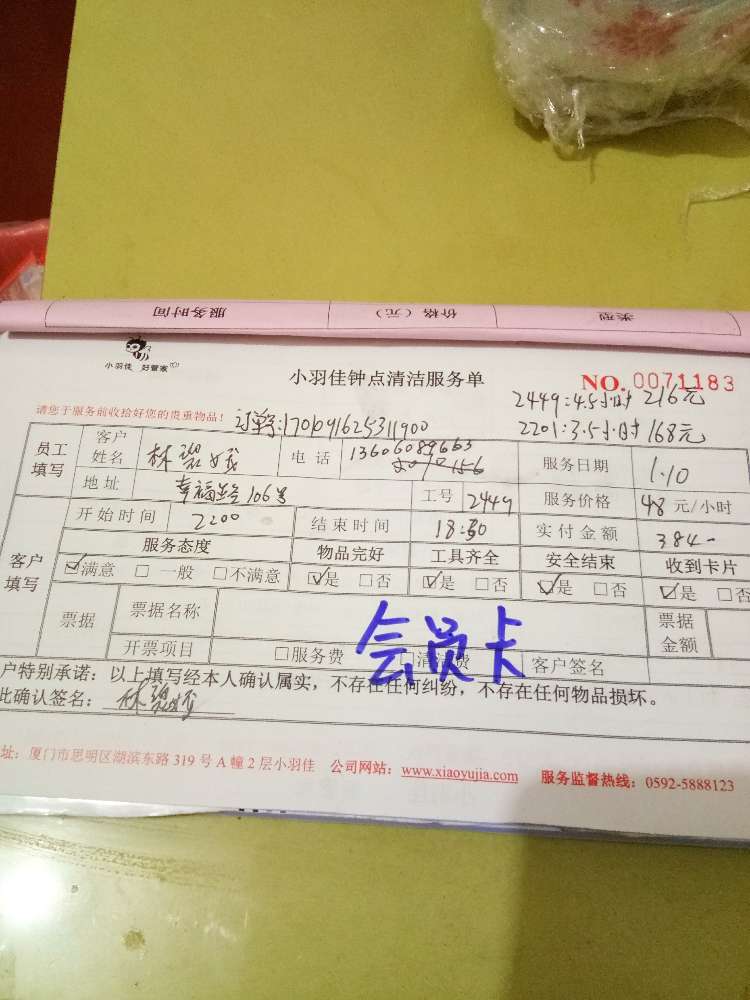 类型 价格（元） 服务时间
小羽佳 好管家
小羽佳钟点清洁服务单 NO. 0071183
2449:4.5小时 216元
请您于服务前收拾好您的贵重物品！
2201:3.5小时 168元
员工填写 客户姓名 林 电话 13606089663 服务日期 1.10
地址 幸福路106号 工号 2449 服务价格 48 元/小时
客户填写 开始时间 结束时间 18:30 实付金额 384-
服务态度 物品完好 工具齐全 安全结束 收到卡片
☑满意 □一般 □不满意 ☑是 □否 ☑是 □否 ☑是 □否 ☑是 □否
票据 票据名称 票据金额
会员卡
开票项目 □服务费 □清洁费 客户签名
户特别承诺：以上填写经本人确认属实，不存在任何纠纷，不存在任何物品损坏。
此确认签名：林
址：厦门市思明区湖滨东路 319 号 A 幢 2 层小羽佳 公司网站：www.xiaoyujia.com 服务监督热线：0592-5888123